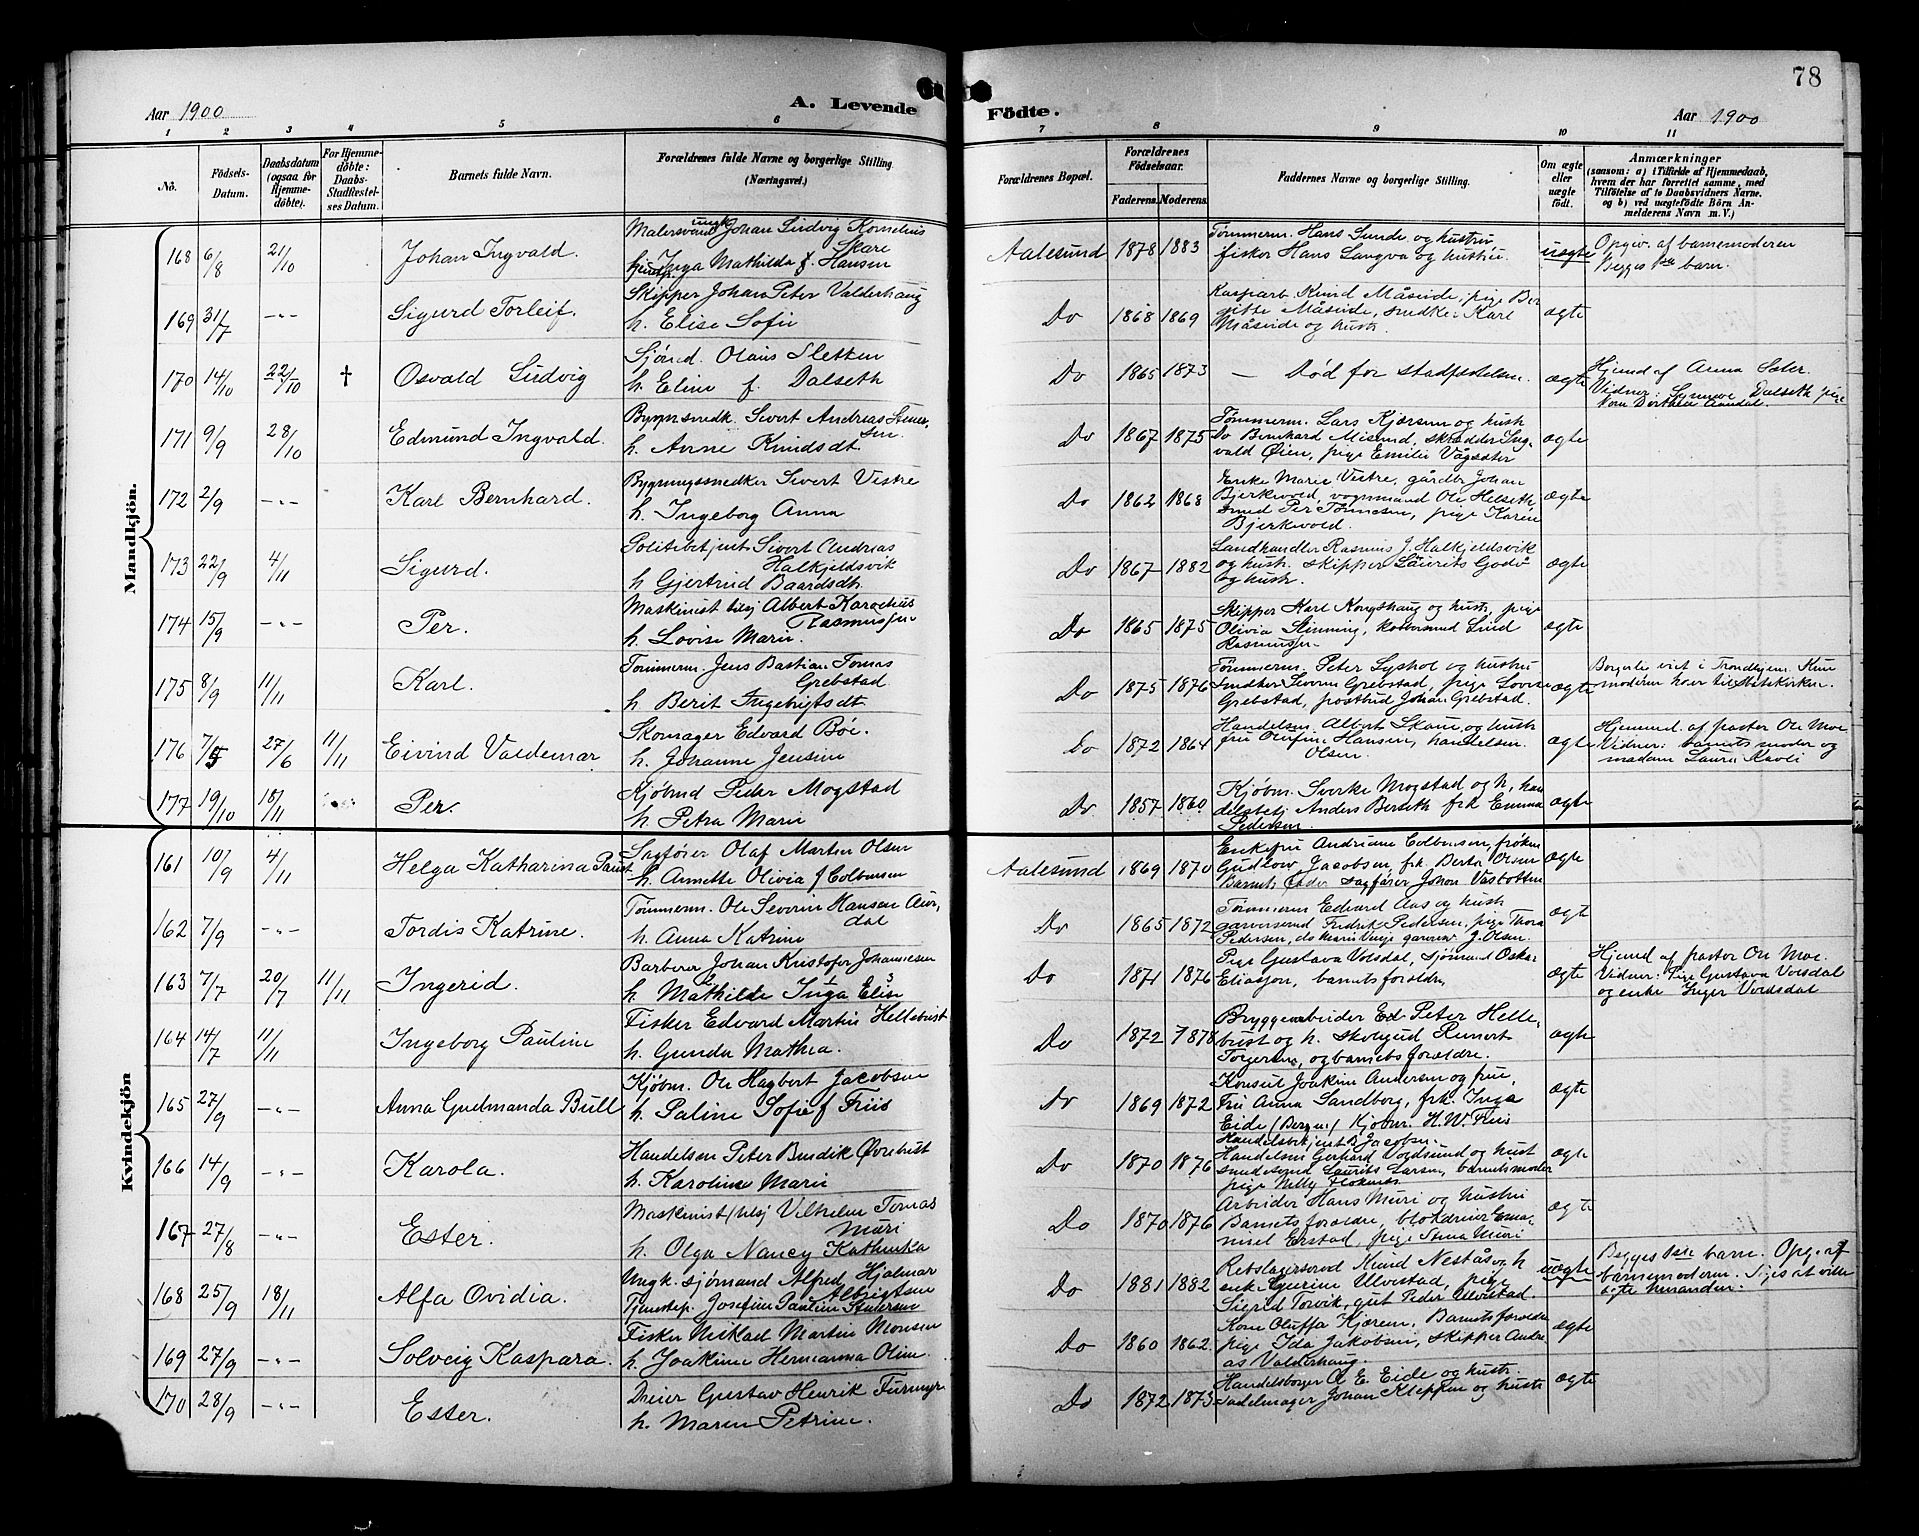 78
Aar 1900
A. Levende
Födte.
Aar 1900
1 2 3 4 5 6 7 8 9 10 11
Nö.
Födsels-Datum.
Daabsdatum (ogsaa for Hjemmedöbte).
For Hjemmedöbte: Daabs-Stadfæstelses Datum.
Barnets fulde Navn.
Forældrenes fulde Navne og borgerlige Stilling. (Næringsvei.)
Forældrenes Bopæl.
Forældrenes Födselsaar.
Faderens. Moderens.
Faddernes Navne og borgerlige Stilling.
Om ægte eller uægte födt.
Anmærkninger
(saasom: a) i Tilfælde af Hjemmedaab, hvem der har forrettet samme, med Tilföielse af to Daabsvidners Navne. og b) ved uægtefödte Börn Anmelderens Navn m. V.)
Mandkjön.
168 6/8 21/10 Johan Ingvald.
Malersvend ungk Johan Ludvig Kornelius Skare
Inga Mathilda f. Hansen
Aalesund 1878 1883
Tømmerm. Hans Sunde og hustru, fisker Hans Langva og hustru.
uægte
Opgiv. af barnemoderen
Begges 1ste barn.
169 31/7 -"- Sigurd Torleif.
Skipper Johan Peter Valderhaug
h. Elise Sofie
Do 1868 1869
Knud Måseide, pige Beritte Måseide, snedker Karl Måseide og hustr.
ægte
170 14/10 22/10 † Osvald Ludvig
Sjömd. Olaus Sletten
h. Eline f. Dalseth
Do 1865 1873
— Død før stadfæstelsen.
ægte
Hjemd af Anna Sæter.
Vidner: Synneve Dalseth, pige
Dorthea Aandal.
171 9/9 28/10 Edmund Ingvald.
Bygnsnedk. Sivert Andreas
h. Anne Knudsdt.
Do 1867 1875
Tømmerm. Lars Kjærsem og hustr
Do Bernhard Misund, skrædder Ingvald Øien, pige Emilie Vågsæter
ægte
172 2/9 -"- Karl Bernhard.
Bygningssnedker Sivert Vestre
h. Ingeborg Anna
Do 1862 1868
Enke Marie Vestre, gårdbr Johan Bjerkevold, vognmand Ole Helseth, smed Per Tönnesen, pige Karen Bjerkevold.
ægte
173 22/9 4/11 Sigurd.
Politibetjent Sivert Andreas Halkjeldsvik
h Gjertrud Baardsdt.
Do 1867 1882
Landhandler Rasmus J. Halkjeldsvik og hustr. skipper Laurits Godø og hustr.
ægte
174 15/9 -"- Per.
Maskinist tilsj Albert Karaelius Rasmussen
h. Lovise Marie.
Do 1865 1875
Skipper Karl Kongshaug og hustr, pige Olivia Slinning, kobbersmed Lind Rasmussen
ægte
175 8/9 11/11 Karl.
Tömmerm. Jens Bastian Tomas Grebstad
h. Berit Ingebrigtsdt
Do 1875 1876
Tømmerm. Peter Lyshol og hustru
snedker Severin Grebstad, pige Lovise Grebstad, postbud Johan Grebstad.
ægte
Borgerlig viet i Trondhjem. Kun moderen hører til Statskirken.
176 7/5 27/6 11/11 Eivind Valdemar
Skomager Edvard Böe.
h. Johanne Jensine
Do 1872 1864
Handelsm. Albert Skaue og hustr
fru Olufine Hansen, handelsm. Olsen.
ægte
Hjemmed. af pastor Ole Moe
Vidner: barnets moder og
madam Laura Ravli
177 19/10 18/11 Per.
Kjöbmd Peder Mogstad
h. Petra Marie
Do 1857 1860
Kjöbm. Sverke Mogstad og h, handelsbetj Anders Berseth frk Emma Pedersen
ægte
Kvindekjön
161 10/9 4/11 Helga Katharina Paust
Sagfører Olaf Martin Olsen
h. Annette Olivia f Colbensen
Aalesund 1869 1870
Enkefru Andriane Colbensen, frøken Gudlow Jacobsen, frk. Berta Olsen
Barnets fader sagfører Johan Vasbotten
ægte
162 7/9 -"- Tordis Katrine.
Tømmerm. Ole Severin Hansen Aurdal
h. Anna Katrine
Do 1865 1872
Tømmerm Edvard Aas og hustr
garversvend Fredrik Pedersen, pige Thora Pedersen, do Marie Vinje garversv J. Olsen.
ægt
163 7/7 20/7 11/11 Ingerid.
Barberer Johan Kristofer Johannesen
h. Mathilde Inga Elise
Do 1871 1876
Pige Gustava Volsdal, sjömand Oskar Eliassen, barnets forældre
ægte
Hjemd af pastor Ole Moe.
Vidner: Pige Gustava Volsdal
og enke Inger Vordsdal
164 14/7 11/11 Ingeborg Pauline
Fisker Edvard Martin Hellebust
h. Gunda Mathea.
Do 1872 1878
Bryggearbeider Ed Peter Hellebust og h. skolegud Reinert Torgersen, og barnets forældre.
ægte
165 27/9 -"- Anna Gudmanda Bull
Kjöbm. Ole Hagbert Jacobsen
h. Paline Sofie f Friis
Do 1869 1872
Konsul Joakim Andersen og frue,
Fru Anna Sandborg, frk. Inga Eide (Bergen) Kjöbm. H. W. Friis
Handelsbetjent B Jacobsen.
ægte
166 14/9 -"- Karola.
Handelsm Peter Bendik Øvrebust
h. Karoline Marie
Do 1870 1876
Handelsm Gerhard Vordsund og hust
smedsvend Laurits Larsen, barnets moder
pige Nelly Flotenes
ægte
167 27/8 -"- Ester.
Maskinist (tilsj Vilhelm Tomas Muri
h. Olga Nancy Kathinka
Do 1870 1876
Arbeider Hans Muri og hustru
Barnets forældre, blokdreier Emanuel Erstad, pige Stina Muri
ægte
168 25/9 18/11 Alfa Ovidia.
Ungk. sjömand Alfred Hjalmar Albrigtsen
Tjenestep. Josefine Pauline
Do 1881 1882
Rebslagersvend Knud Nestås og h
enke Severine Ulvestad, pige Sigrid Torvik, gut Peder Ulvestad.
uægte
Begges 1ste barn. Opg. af
barnemoderen. Siges at ville
ægte hinanden.
169 27/9 -"- Solveig Kaspara.
Fisker Mikael Martin Monsen
h. Joakime Hermanna Oline
Do 1860 1862
Kone Oluffa Kjærem, Barnets forældre
pige Ida Jakobsen, skipper Andreas Valderhaug.
ægte
170 28/9 -"- Ester.
Dreier Gustav Henrik Furmyr
h. Maren Petrine.
Do 1872 1873
Handelsborger A E Eide og hustr.
Sadelmager Johan Kleppen og hustr
ægte